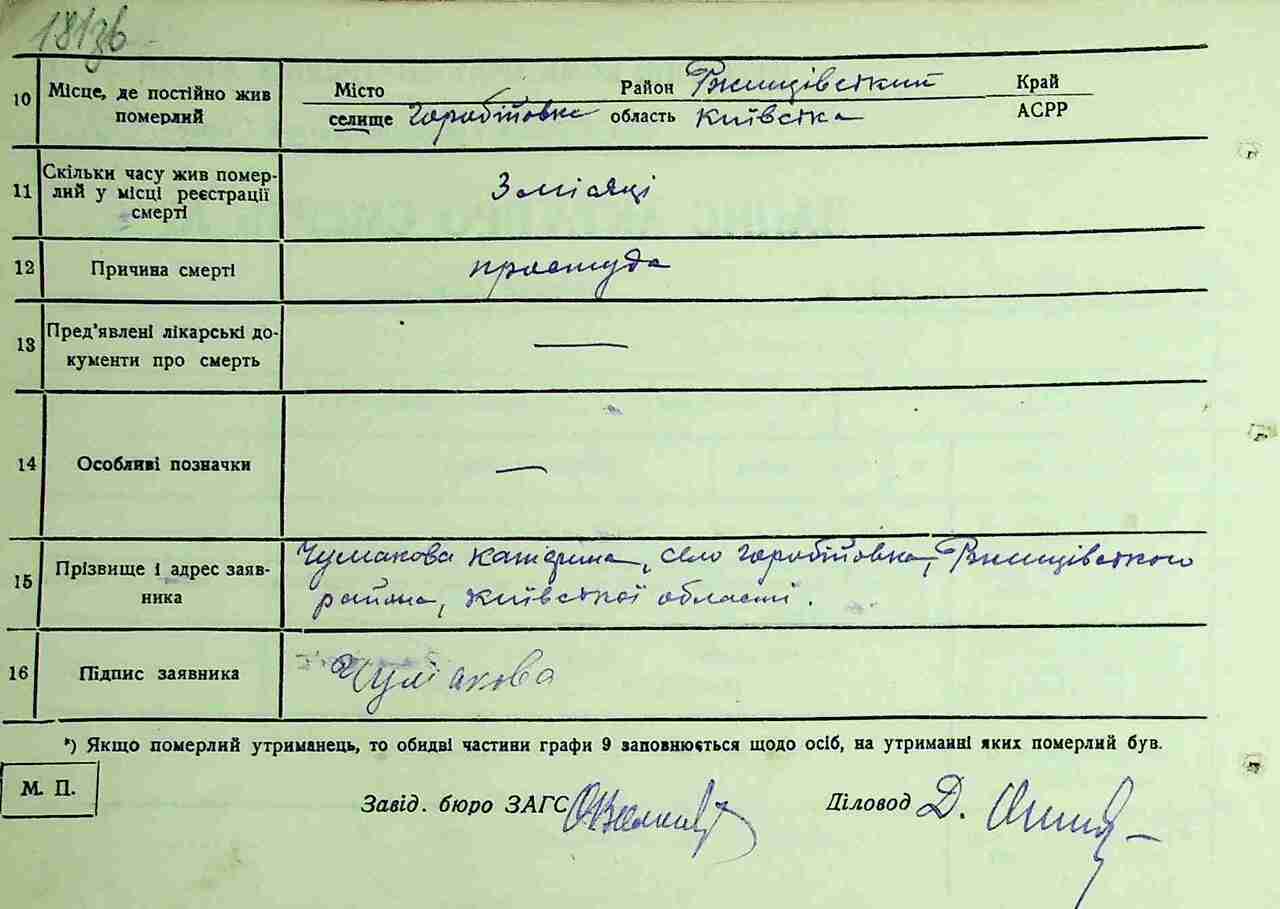 181зв
10 Місце, де постійно жив померлий
Місто Район Ржищівський Край
селище Горобіївка область Київська АСРР
11 Скільки часу жив помер-
лий у місці реєстрації
смерті
3 місяці
12 Причина смерті простуда
13 Пред'явлені лікарські до-
кументи про смерть —
14 Особливі позначки —
15 Прізвище і адрес заяв-
ника
Чумакова Катерина, село Горобіївка, Ржищівського
района, Київської області.
16 Підпис заявника Чумакова
*) Якщо померлий утриманець, то обидві частини графи 9 заповнюється щодо осіб, на утриманні яких померлий був.
М. П.
Завід. бюро ЗАГС Діловод Д.